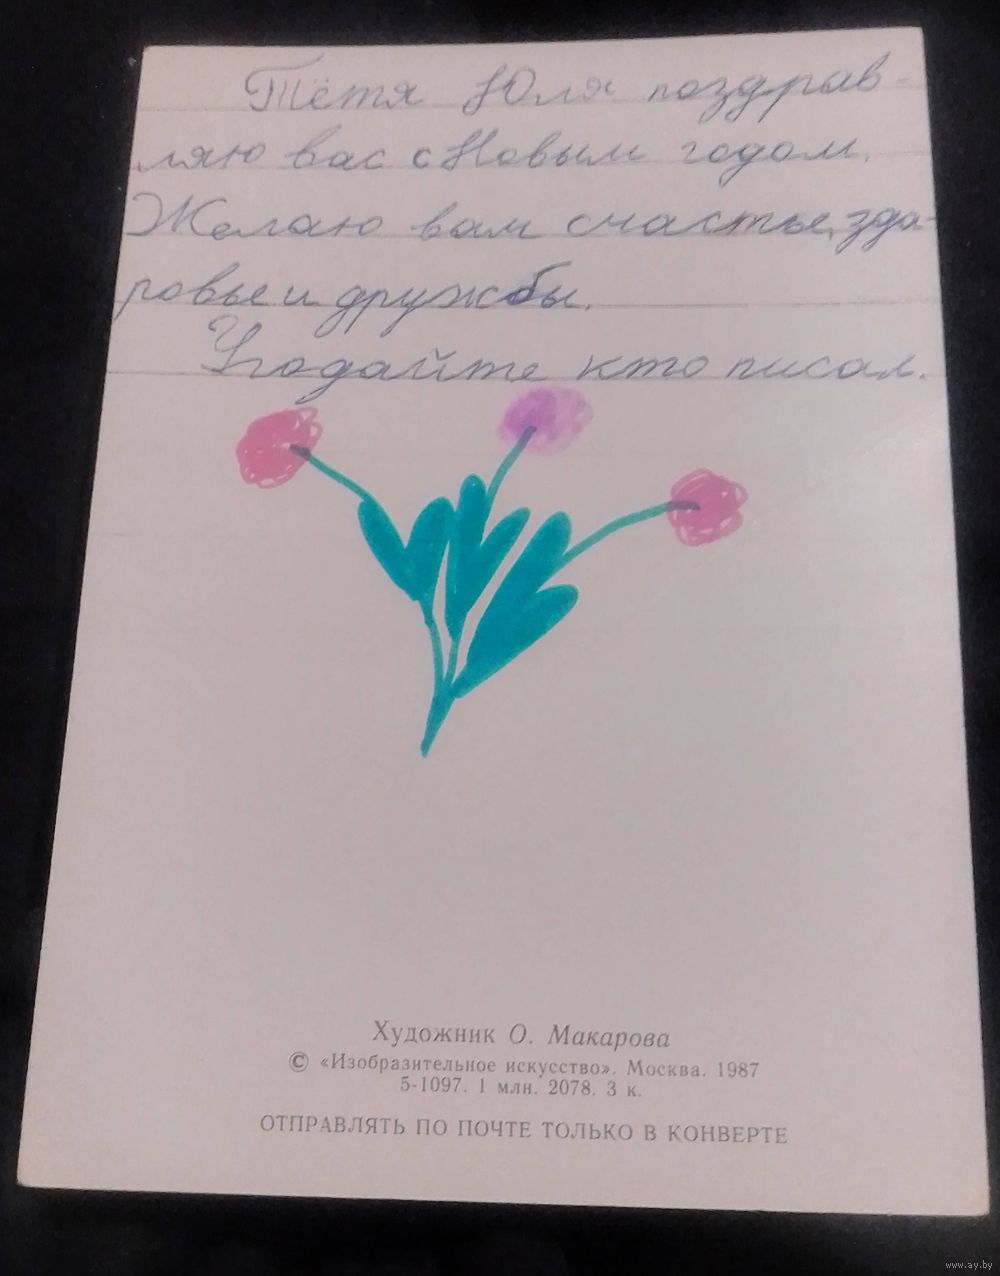 Тётя Юля поздрав-
ляю вас с Новым годом.
Желаю вам счастье, зда-
ровье и дружбы.
Угодайте кто писал.
Художник О. Макарова
© «Изобразительное искусство». Москва. 1987
5-1097. 1 млн. 2078. 3 к.
ОТПРАВЛЯТЬ ПО ПОЧТЕ ТОЛЬКО В КОНВЕРТЕ
www.ay.by